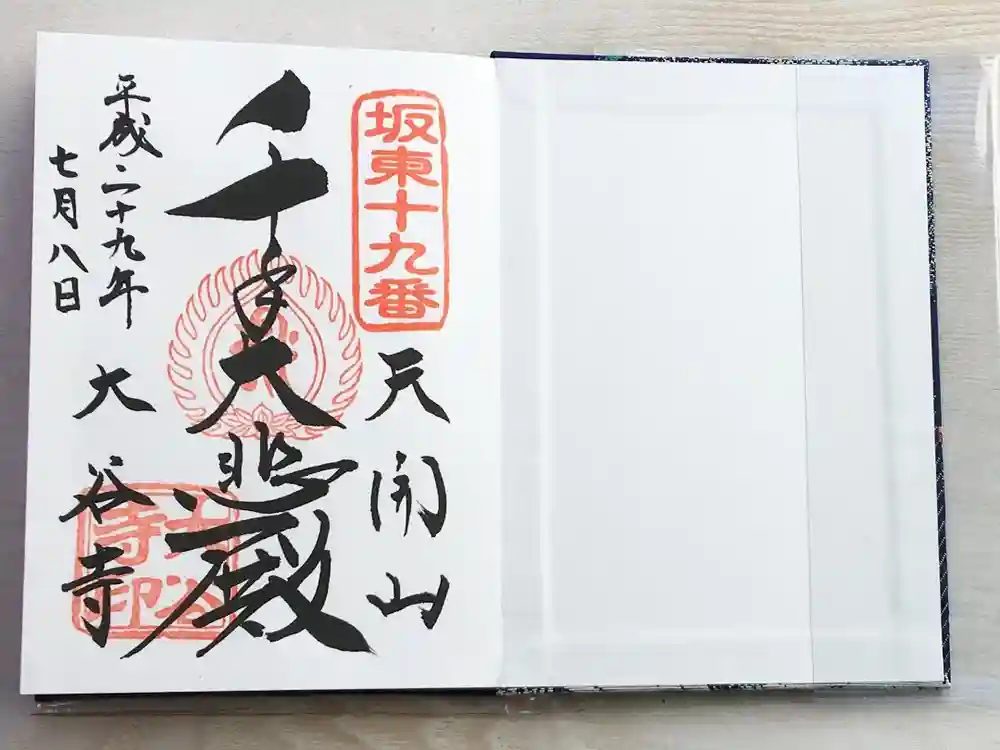 坂東十九番
天開山
千手大悲殿
大谷寺
大谷寺印
平成二十九年
七月八日